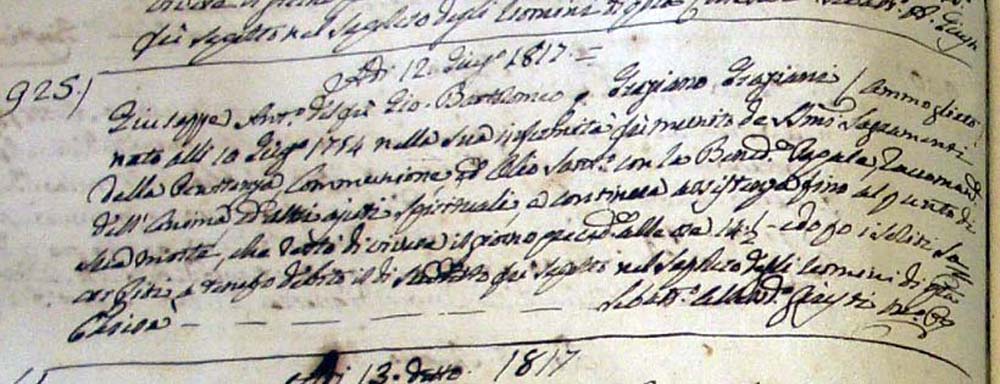 fù sepolto nel Sepolcro degli Uomini di qta
Adi 12 Giugo 1817 =
925/ Giuseppe Anto del qu Gio. Bartolomeo q. Graziano Graziani / ammogliato
nato alli 10 Giugo 1754 nella sua infermità fù munito de SSmi Sagramenti
della Penitenza Communione, ed Olio Santo con la Bened. Papale, Raccomad.
dell'Anima ed altri ajuti spirituali, e continua assistenza fino al punto di
sua morte, che restò di vivere il giorno preced.e alle ore 14½ - e dopo i soliti
e tempo debito il dì fù sepolto nel Sepolcro degli Uomini di qta
Chiesa
Adi 13. detto 1817